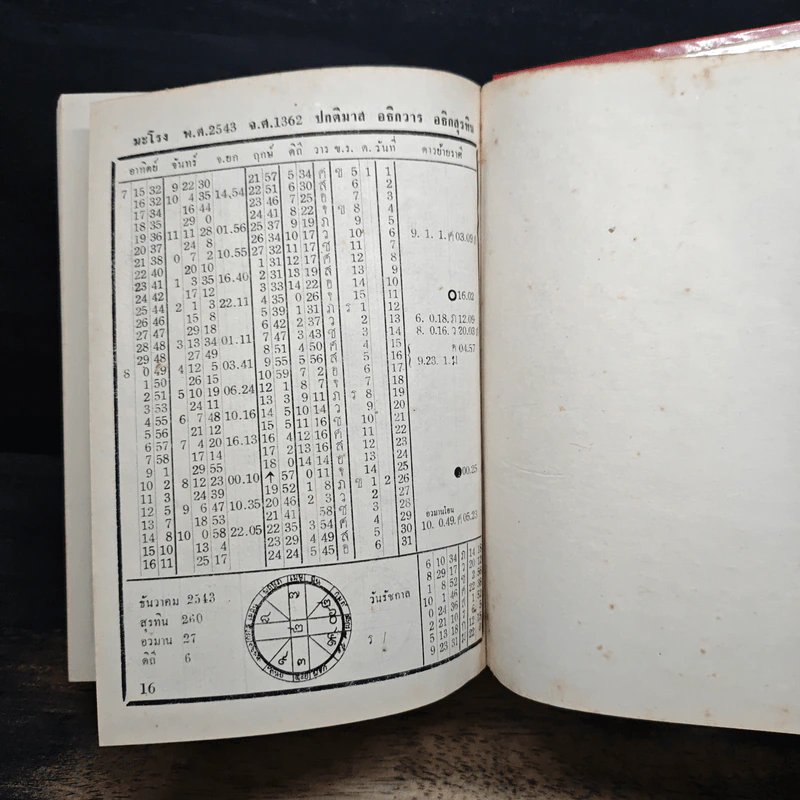 มะโรง พ.ศ.2543 จ.ศ.1362 ปกติมาส อธิกวาร อธิกสุรทิน
อาทิตย์ จันทร์ จ.ยก ฤกษ์ ดิถี วาร ข.ร. ด. วันที่ ดาวย้ายราศี
7 15 32 9 22 30 21 57 5 34 ศ ข 5 1 1
16 32 10 4 35 14.54 22 51 6 30 ส 6 2
17 34 16 44 23 46 7 25 อ 7 3
18 35 29 0 24 41 8 22 จ ข 8 4
19 36 11 11 28 01.56 25 37 9 19 ภ 9 5
20 37 24 8 26 34 10 17 ว 10 6 9. 1. 1.ศ 03.09
21 38 0 7 2 10.55 27 32 11 17 ช 11 7
22 40 20 10 1 31 12 17 ศ 12 8
23 41 1 3 35 16.40 2 31 13 19 ส 13 9
24 42 17 12 3 33 14 22 อ 14 10
25 44 2 1 3 22.11 4 35 0 26 จ 15 11 16.02
26 46 15 8 5 39 1 31 ภ ร 1 12 6. 0.18.ภ 12.09
27 47 29 18 6 42 2 37 ว 2 13 8. 0.16. ว 20.03
28 48 3 13 34 01.11 7 47 3 43 ช 3 14
29 48 27 49 8 51 4 50 ศ 4 15 04.57
8 0 49 4 12 5 03.41 9 55 5 56 ส 5 16 9.23. 1.
1 50 26 15 10 59 7 2 อ 6 17
2 51 5 10 19 06.24 12 1 8 7 จ 7 18
3 53 24 11 13 3 9 11 ภ ร 8 19
4 55 6 7 48 10.16 14 5 10 14 ว 9 20
5 56 21 12 15 5 11 16 ช 10 21
6 57 7 4 20 16.13 16 4 12 16 ศ 11 22
7 58 17 14 17 2 13 16 ส 12 23
9 1 29 55 18 0 14 14 อ 13 24
10 2 8 12 23 00.10 ↑ 57 0 11 จ 14 25 00.25
11 3 24 39 19 52 1 8 ภ ข 1 2 26
12 5 9 6 47 10.35 20 46 2 3 ว 2 27
13 7 18 53 21 41 58 ช 3 28 อวมานโอน
14 8 10 0 58 22.05 22 35 3 54 ศ 4 29 10. 0.49.ศ 05.23
15 10 13 4 23 29 4 49 ส 5 30
16 11 25 17 24 24 5 45 อ 6 31
ธันวาคม 2543
สุรทิน 260
อวมาน 27
ดิถี 6
วันรัชกาล
ร
16